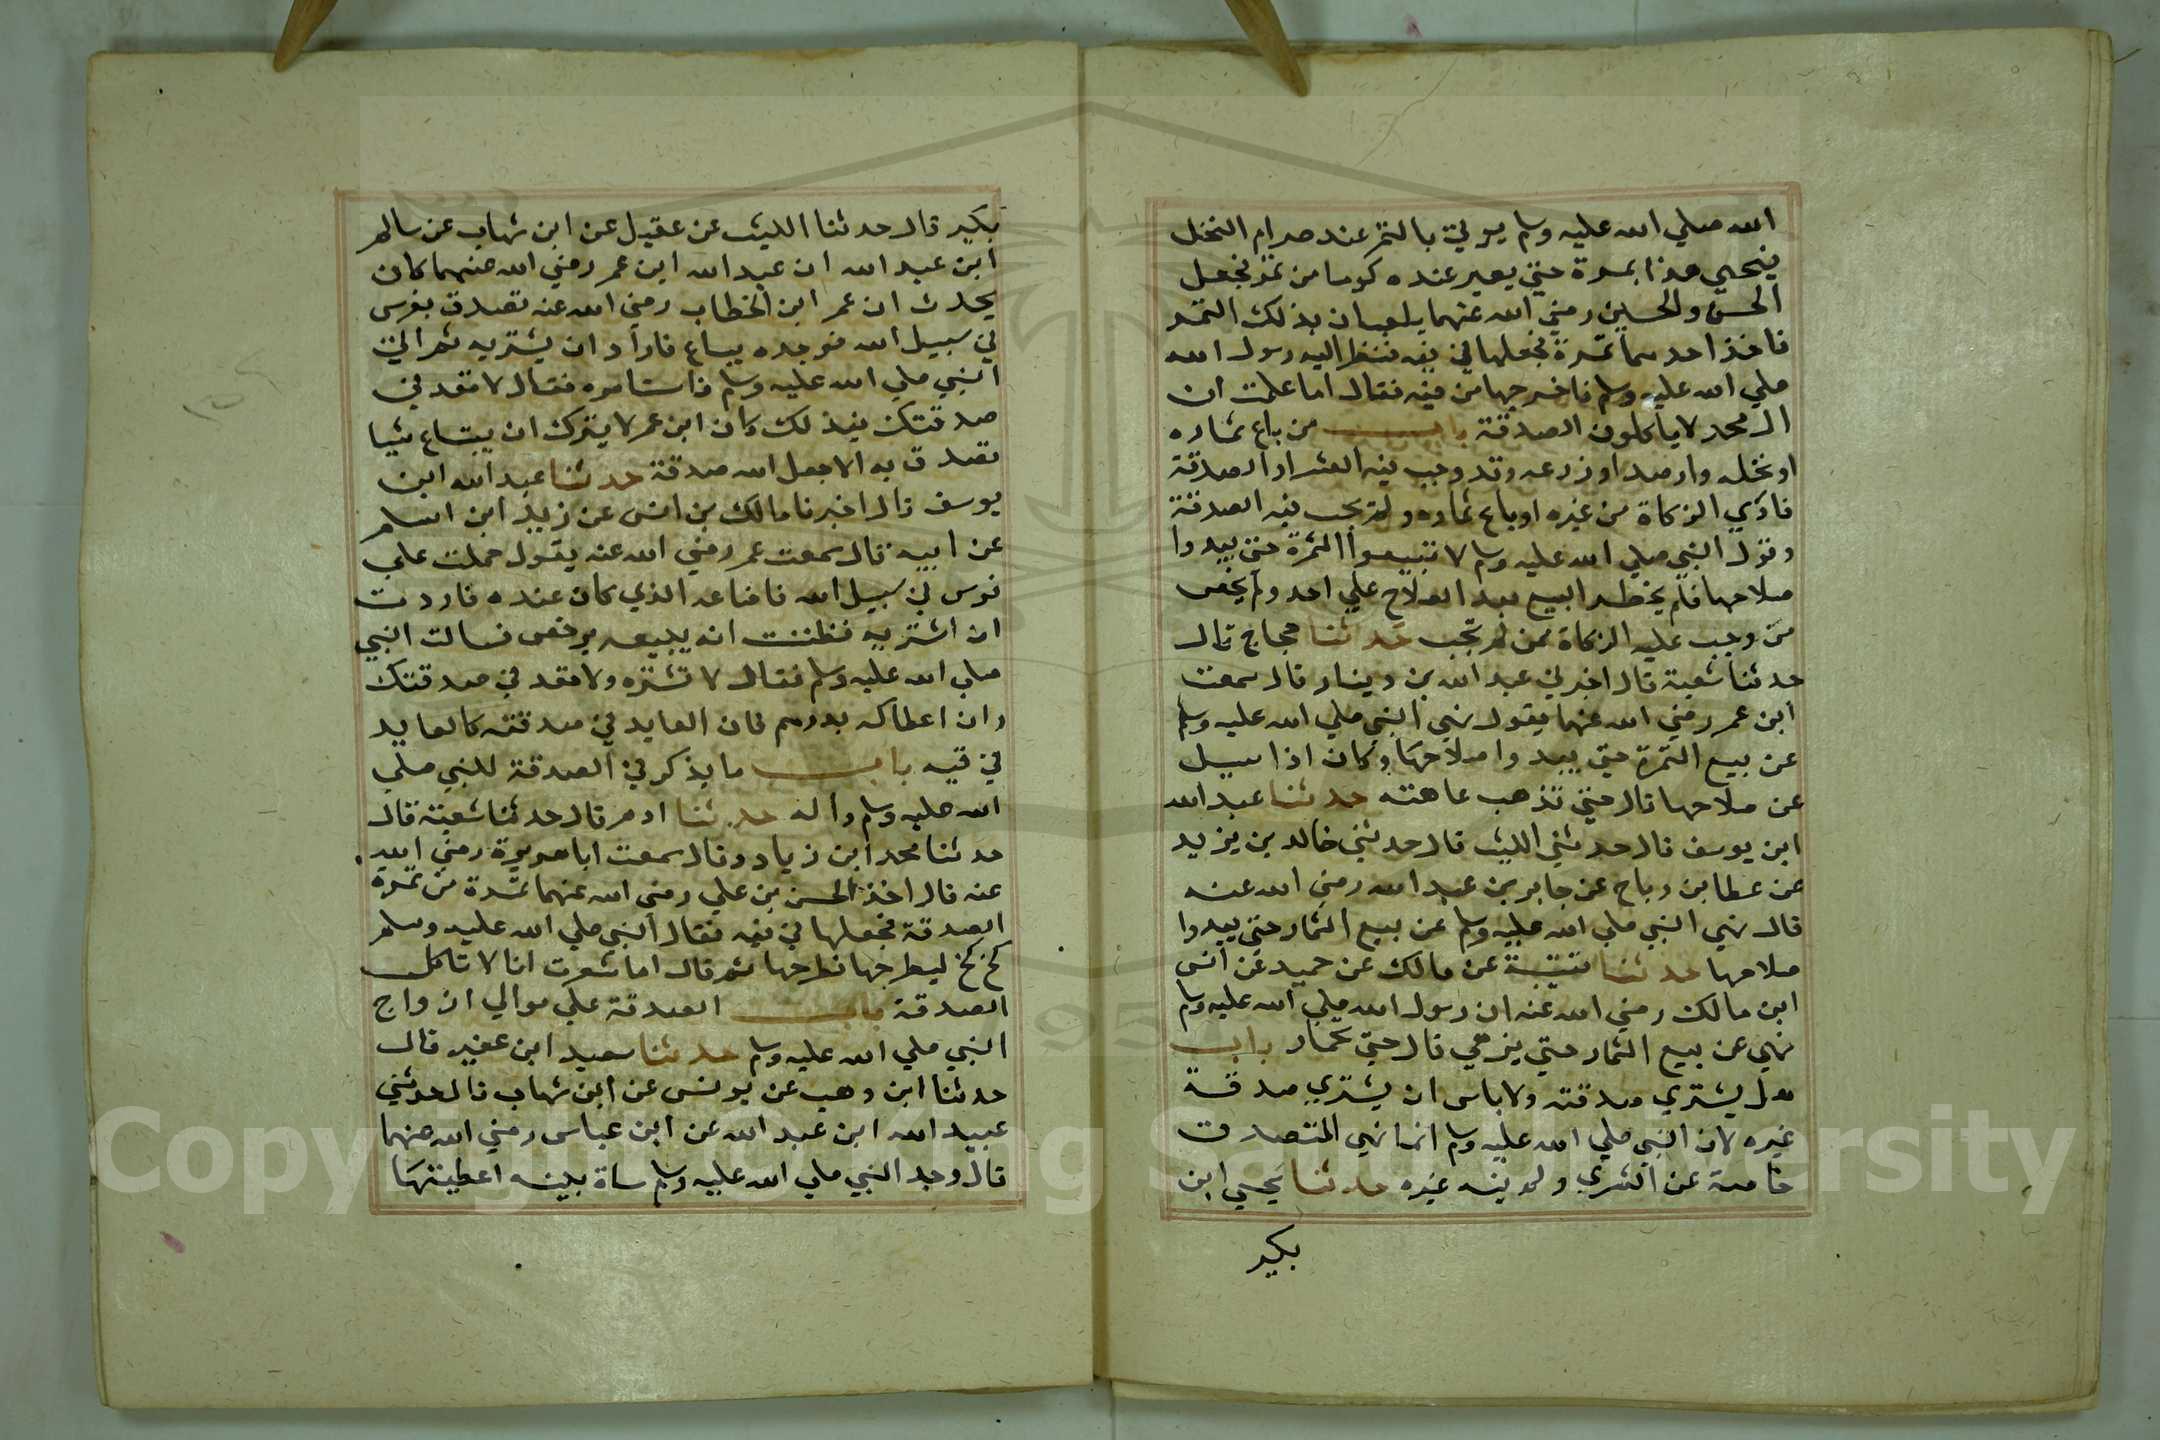 الله صلي الله عليه وسلم يوتي بالتمر عند صرام النخل
فيجي هذا بمره حتي يصير عنده كوما من تمر فجعل
الحسن والحسين رضي الله عنهما يلعبان بذلك التمر
فاخذ احدهما تمرة فجعلها في فيه فنظر اليه رسول الله
صلي الله عليه وسلم فاخرجها من فيه فقال اما علمت ان
ال محمد لا ياكلون الصدقة باب من باع ثماره
او نخله وارضه او زرعه وقد وجب فيه العشر او الصدقة
فادي الزكاة من غيره او باع ثماره ولم تجب فيه الصدقة
وقول النبي صلي الله عليه وسلم لا تبيعوا الثمرة حتي يبدوا
صلاحها فلم يحظر البيع بعد الصلاح علي احد ولم يخص
من وجب عليه الزكاة ممن لم تجب حدثنا حجاج قال
حدثنا شعبة قال اخبرني عبد الله بن دينار قال سمعت
ابن عمر رضي الله عنهما يقول نهي النبي صلي الله عليه وسلم
عن بيع الثمرة حتي يبدوا صلاحها وكان اذا سيل
عن صلاحها قال حتي تذهب عاهته حدثنا عبد الله
ابن يوسف قال حدثني الليث قال حدثني خالد بن يزيد
عن عطا بن رباح عن جابر بن عبد الله رضي الله عنه
قال نهي النبي صلي الله عليه وسلم عن بيع الثمار حتي يبدوا
صلاحها حدثنا قتيبة عن مالك عن حميد عن انس
ابن مالك رضي الله عنه ان رسول الله صلي الله عليه وسلم
نهي عن بيع الثمار حتي يزهي قال حتي تحمار باب
هل يشتري صدقته ولا باس ان يشتري صدقة
غيره لان النبي صلي الله عليه وسلم انما نهي المتصدق
خاصة عن الشري ولم ينه غيره حدثنا يحيي ابن
بكير
بكير قال حدثنا الليث عن عقيل عن ابن شهاب عن سالم
ابن عبد الله ان عبد الله ابن عمر رضي الله عنهما كان
يحدث ان عمر ابن الخطاب رضي الله عنه تصدق بفرس
في سبيل الله فوجده يباع فاراد ان يشتريه ثم اتي
النبي صلي الله عليه وسلم فاستامره فقال لا تعد في
صدقتك فبذلك كان ابن عمر لا يترك ان يبتاع شيا
تصدق به الا جعل الله صدقة حدثنا عبد الله ابن
يوسف قال اخبرنا مالك بن انس عن زيد ابن اسلم
عن ابيه قال سمعت عمر رضي الله عنه يقول حملت علي
فرس في سبيل الله فاضاعه الذي كان عنده فاردت
ان اشتريه فظننت انه يبيعه برخص فسالت النبي
صلي الله عليه وسلم فقال لا تشتره ولا تعد في صدقتك
وان اعطاكه بدرهم فان العايد في صدقته كالعايد
في قيه باب ما يذكر في الصدقة للنبي صلي
الله عليه وسلم واله حدثنا ادم قال حدثنا شعبة قال
حدثنا محمد ابن زياد وقال سمعت ابا هريرة رضي الله
عنه قال اخذ الحسن بن علي رضي الله عنهما تمرة من تمرة
الصدقة فجعلها في فيه فقال النبي صلي الله عليه وسلم
كخ كخ ليطرحها فطرحها ثم قال اما شعرت انا لا ناكل
الصدقة باب الصدقة علي موالي ازواج
النبي صلي الله عليه وسلم حدثنا سعيد ابن عفير قال
حدثنا ابن وهب عن يونس عن ابن شهاب قال حدثني
عبيد الله ابن عبد الله عن ابن عباس رضي الله عنهما
قال وجد النبي صلي الله عليه وسلم شاة ميتة اعطيتها
Copyright © King Saud University